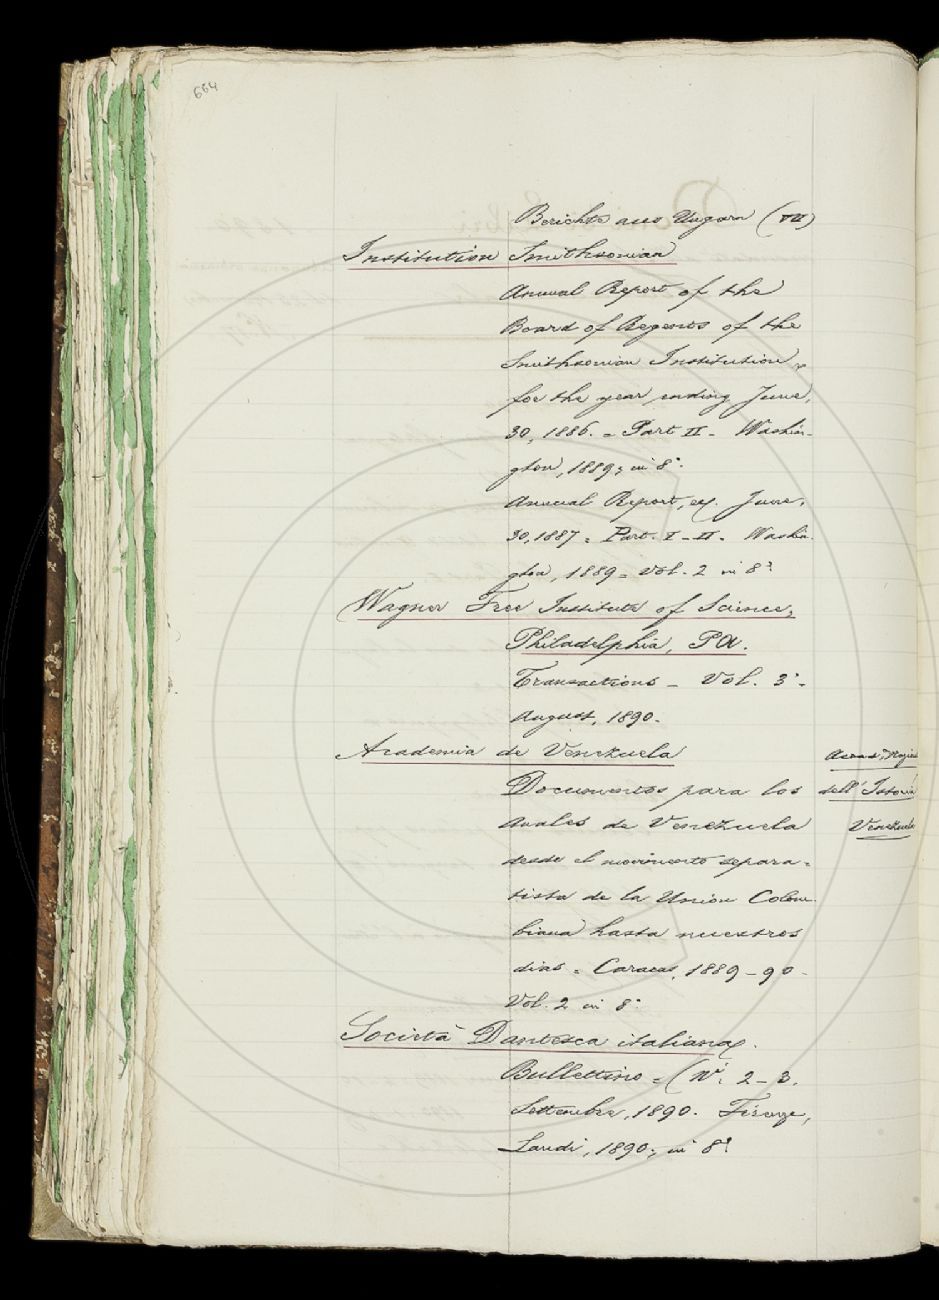 664
Berichte aus Ungarn (VII)
Institution Smithsonian
Annual Report of the
Board of Regents of the
Smithsonian Institution,
for the year ending June,
30, 1886. = Part II - Washin-
gton, 1889; in 8°.
Annual Report, ec. June,
30, 1887 = Part. I - II - Washin
gton, 1889 = Vol. 2 in 8°
Wagner Free Institute of Science,
Philadelphia, PA.
Transactions - Vol. 3° -
August, 1890 -
Academia de Venezuela
Documentos para los
Anales de Venezuela
desde el movimiento separa=
tista de la Union Colom
biana hasta nuestros
dias = Caracas, 1889 - 90 -
Vol. 2 in 8°
Accad. Nazie
dell' Istoria
Venezuela
Società Dantesca italiana.
Bullettino = (N.i 2 - 3.
Settembre, 1890. Firenze,
Landi, 1890; in 8°